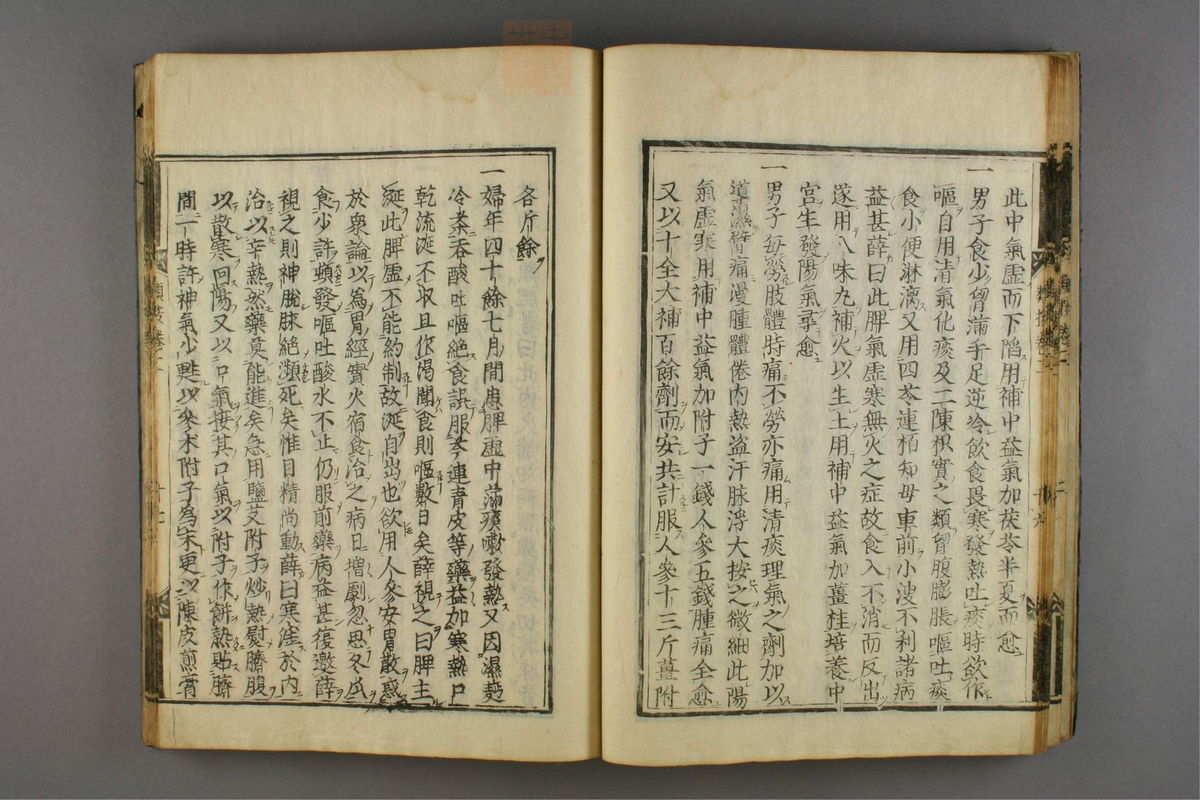 此中氣虛而下陷用補中益氣加茯苓半夏而愈
一男子食少胷滿手足逆冷飲食畏寒發熱吐痰時欲作
嘔自用清氣化痰及二陳枳實之類胷腹膨脹嘔吐痰
食小便淋漓又用四苓連栢知母車前小溲不利諸病
益甚薛曰此脾氣虛寒無火之症故食入不消而反出
遂用八味丸補火以生土用補中益氣加薑桂培養中
宮生發陽氣尋愈
一男子每勞肢體時痛不勞亦痛用清痰理氣之劑加以
導濕臂痛漫腫體倦內熱盜汗脉浮大按之微細此陽
氣虛寒用補中益氣加附子一錢人參五錢腫痛全愈
又以十全大補百餘劑而安共計服人參十三斤薑附
各斤餘
一婦年四十餘七月間患脾虛中滿痰嗽發熱又因濕麪
冷茶吞酸吐嘔絕食誤服芩連青皮等藥益加寒熱口
乾流涎不収且作渴聞食則嘔數日矣薛視之曰脾主
涎此脾虛不能約制故涎自出也欲用人參安胃散惑
於衆論以為胃經實火宿食治之病日增劇忽思冬瓜
食少許頓發嘔吐酸水不止仍服前藥病益甚復邀薛
視之則神脫脉絕瀕死矣惟目精尚動薛曰寒淫於內
治以辛熱然藥莫能進矣急用鹽艾附子炒熱熨臍腹
以散寒回陽又以口氣接其口氣以附子作餅熱貼臍
間一時許神氣少甦以參术附子為末更以陳皮煎膏